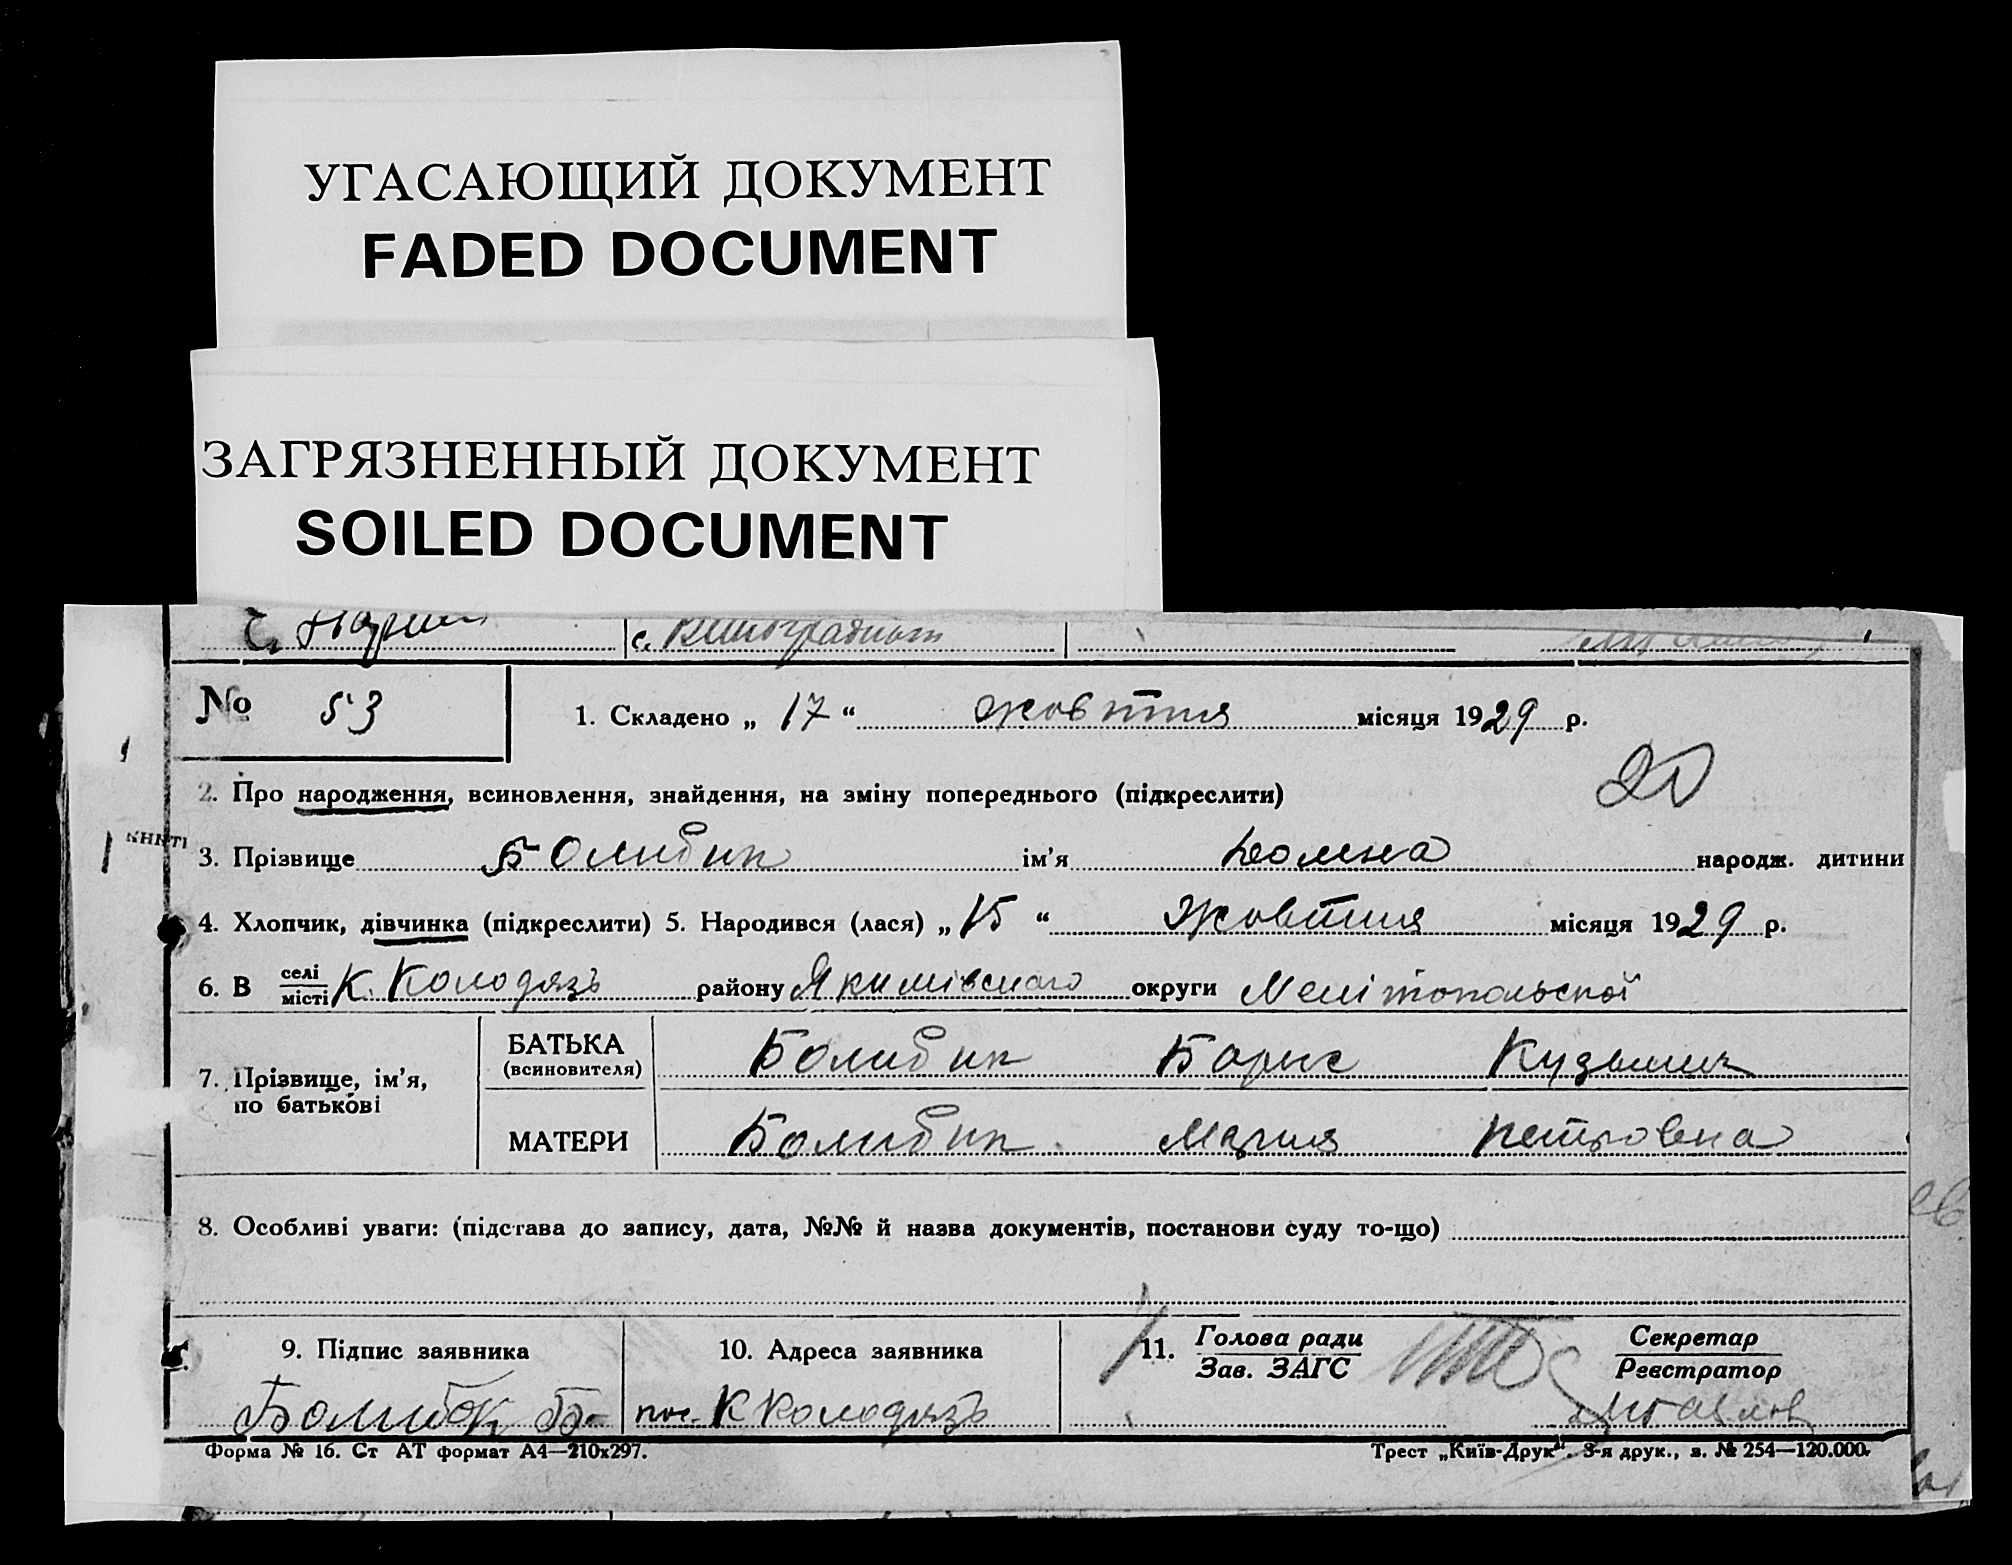 УГАСАЮЩИЙ ДОКУМЕНТ
FADED DOCUMENT
ЗАГРЯЗНЕННЫЙ ДОКУМЕНТ
SOILED DOCUMENT
с. Виноградного
№ 53
1. Складено „ 17 “ жовтня місяця 1929 р.
20
2. Про народження, всиновлення, знайдення, на зміну попереднього (підкреслити)
книги
3. Прізвище Болибик ім'я Домна народж. дитини
4. Хлопчик, дівчинка (підкреслити) 5. Народився (лася) „ 15 “ Жовтня місяця 1929 р.
6. В селі/місті К. Колодязь району Якимівського округи Мелітопольської
7. Прізвище, ім'я, по батькові
БАТЬКА (всиновителя) Болибик Борис Кузьмич
МАТЕРИ Болибик Мария Петровна
8. Особливі уваги: (підстава до запису, дата, №№ й назва документів, постанови суду то-що)
9. Підпис заявника
Болибок Б.
10. Адреса заявника
пос. К Колодязь
11. Голова ради
Зав. ЗАГС
Секретар
Реєстратор
Форма № 16. Ст АТ формат А4—210х297.
Трест „Київ-Друк“. 3-я друк., з. № 254—120.000.